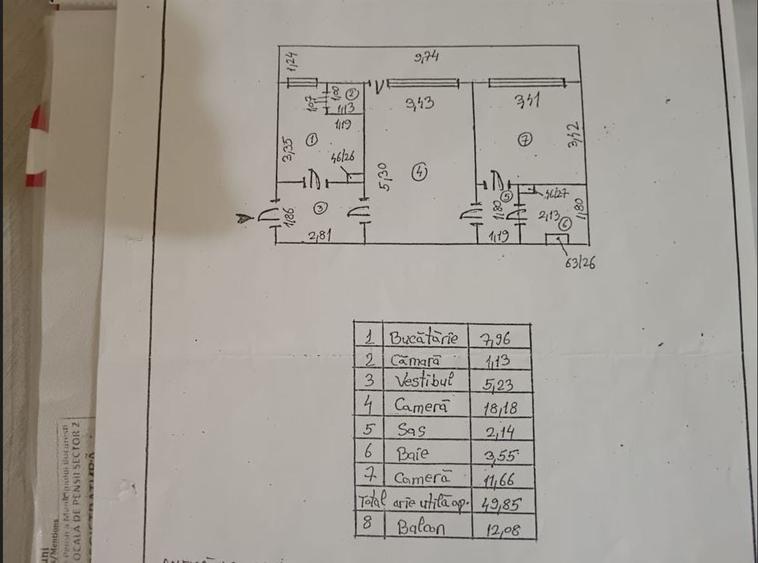 9,74
1,24
1,07
1,00
2
1,13
1,19
3,43
3,41
3,35
1
46/26
5,30
4
7
3,42
3
1,86
2,81
1,80
5
46/27
2,13
6
1,80
1,19
63/26
1 Bucătărie 7,96
2 Cămară 1,13
3 Vestibul 5,23
4 Cameră 18,18
5 Sas 2,14
6 Baie 3,55
7 Cameră 11,66
Total arie utilă ap. 49,85
8 Balcon 12,08
OCALA DE PENSII SECTOR 2